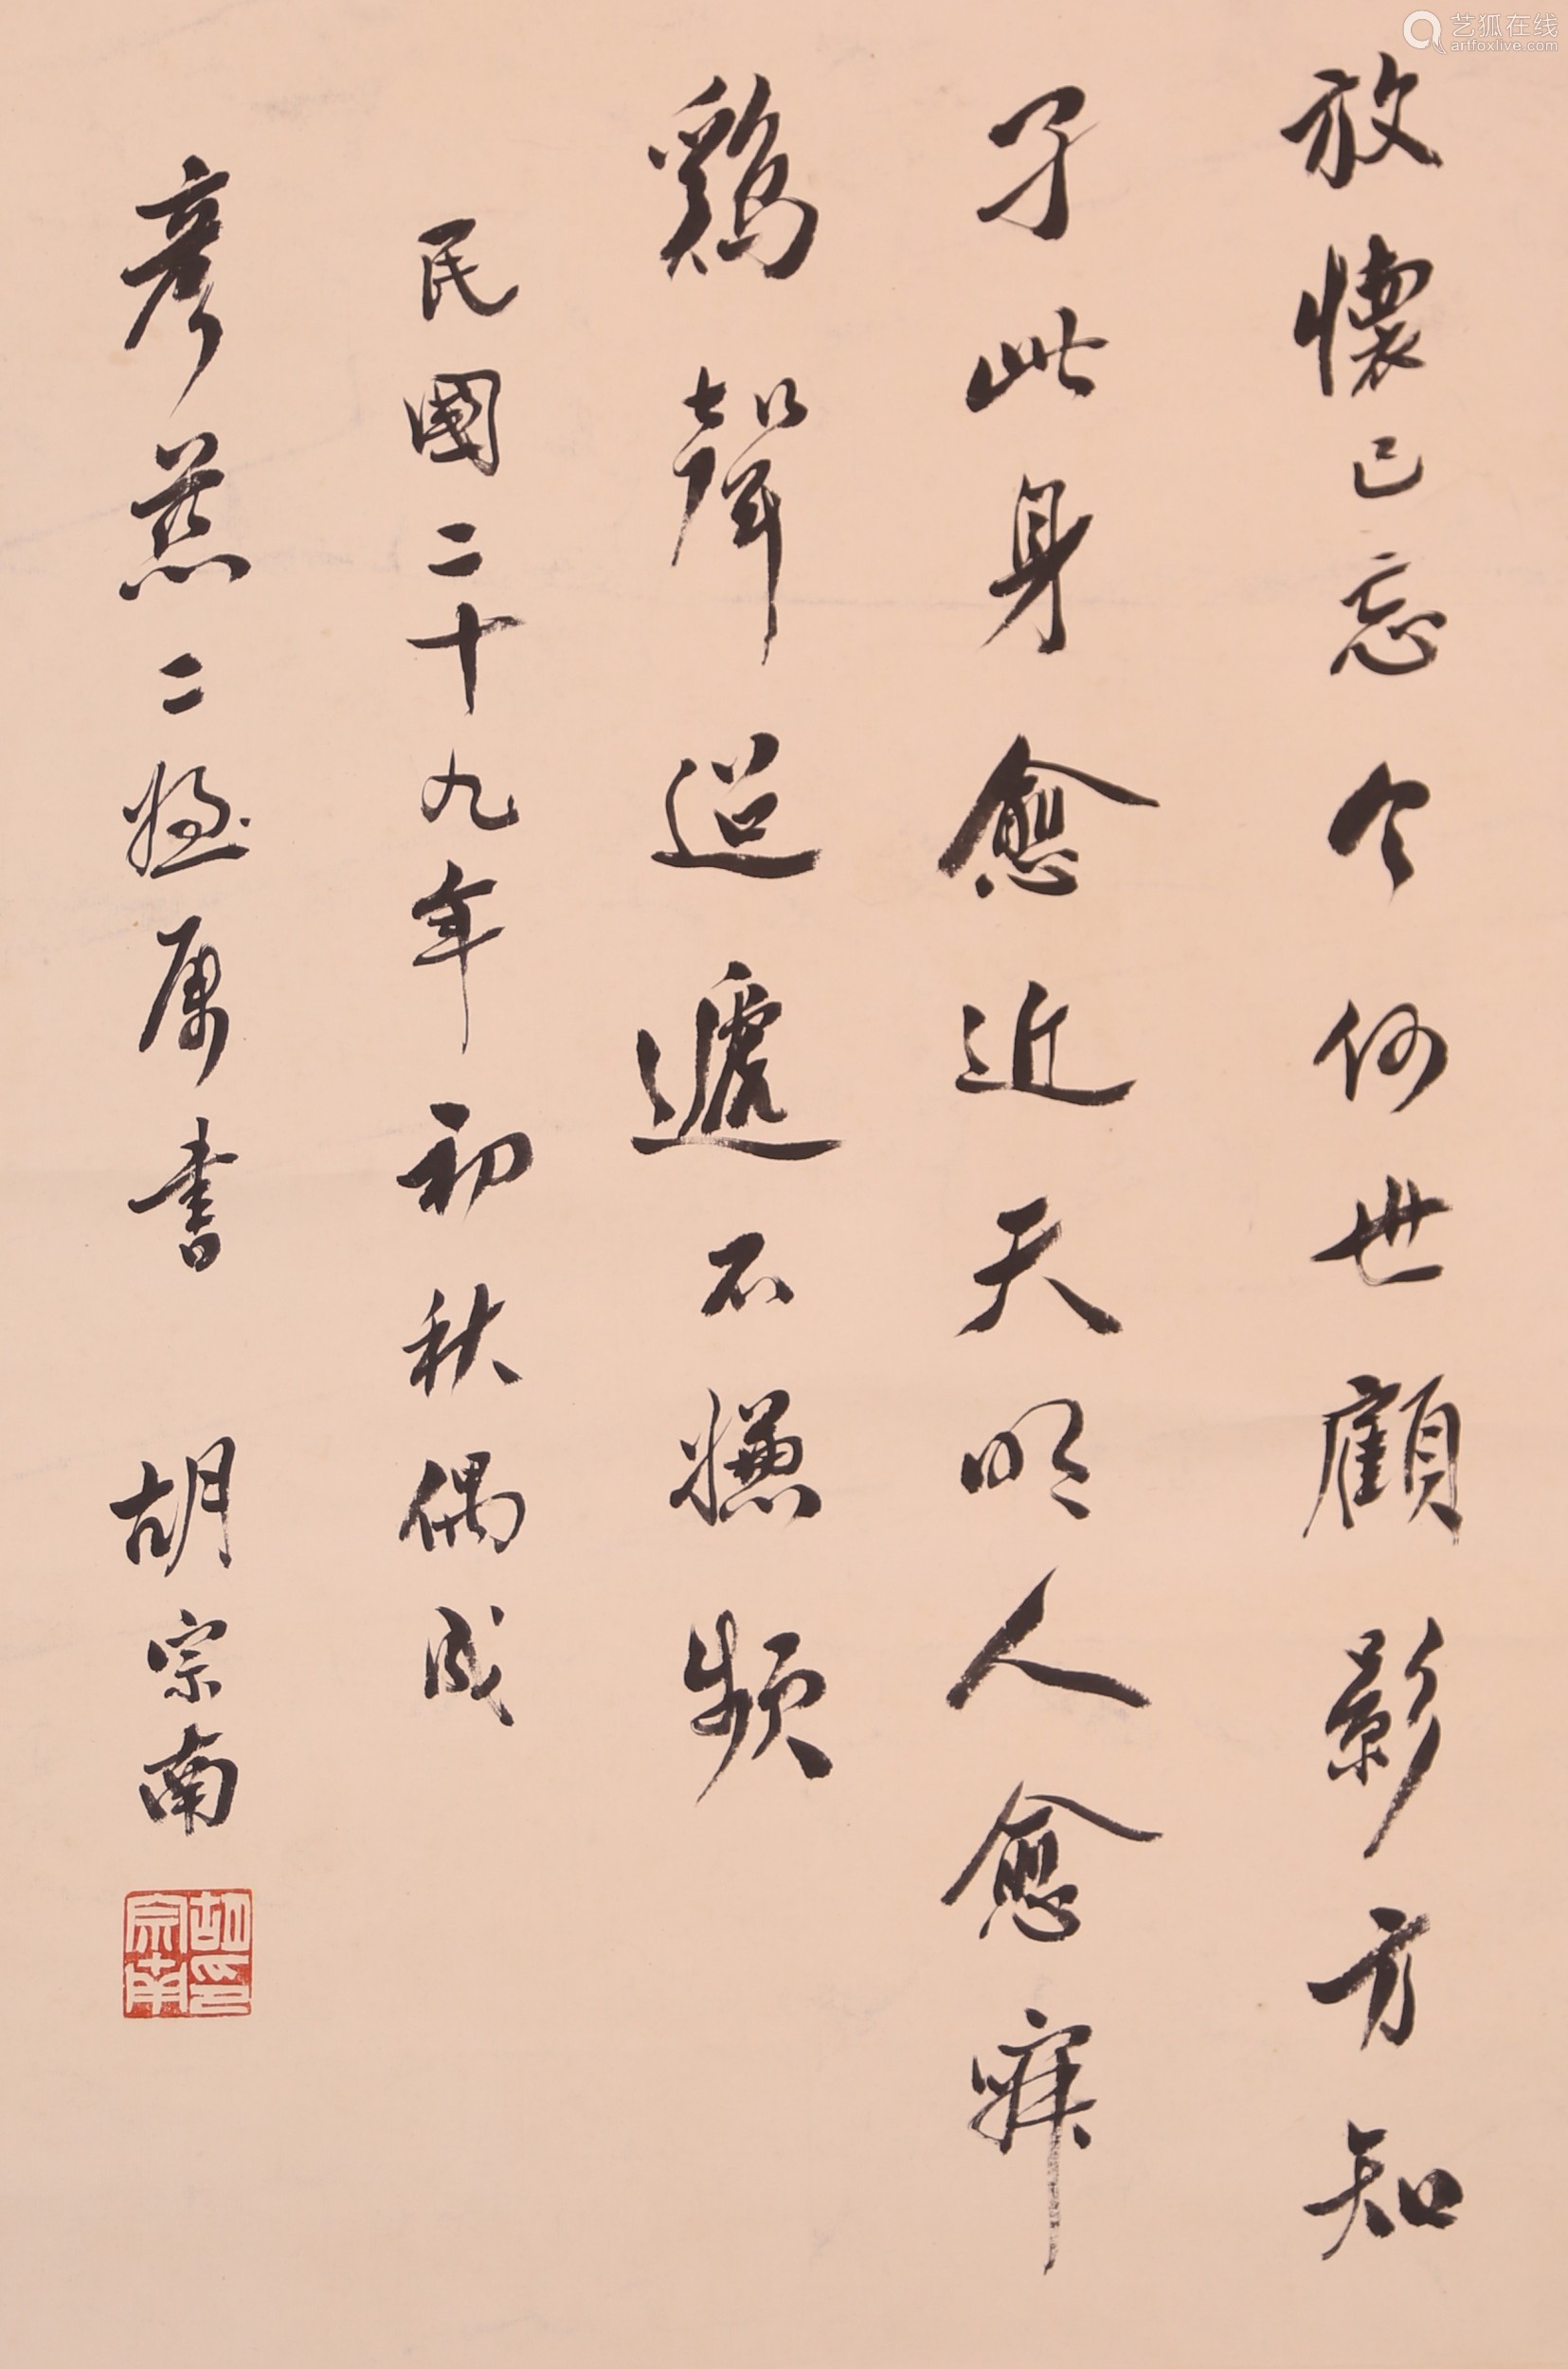 放懷已忘今何世顧影方知
孑此身愈近天明人愈寐
鷄聲迢遞不嫌頻
民國二十九年初秋偶成
彥燕二姬属書 胡宗南
胡宗南印
艺狐在线
artfoxlive.com